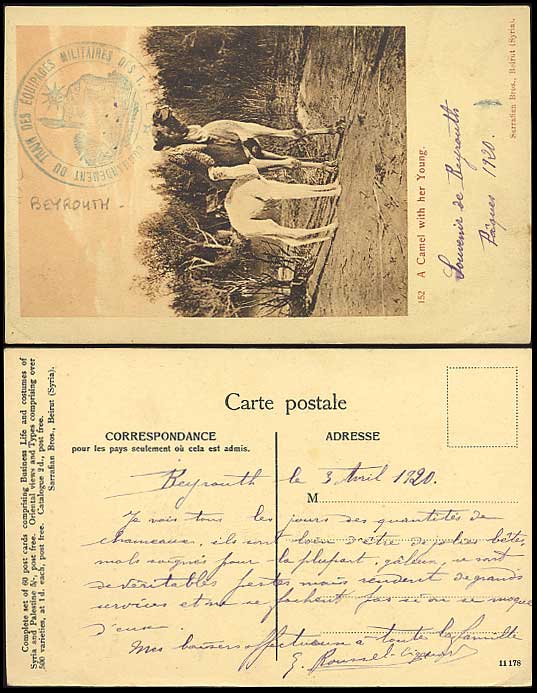 COMMANDEMENT DU TRAIN DES ÉQUIPAGES MILITAIRES DES T.
BEYROUTH -
152 A Camel with her Young.
Souvenir de Beyrouth
Pâques 1920.
Sarrafian Bros., Beirut (Syria).
Complete set of 60 post cards comprising Business Life and costumes of
Syria and Palestine 4/-, post free. Oriental views and Types comprising over
500 varieties, at 1d. each, post free. Catalogue 2d., post free.
Sarrafian Bros., Beirut (Syria).
Carte postale
CORRESPONDANCE
pour les pays seulement où cela est admis.
ADRESSE
Beyrouth le 3 Avril 1920.
M
Je vois tous les jours des quantités de
chameaux, ils sont loin d'être de jolies bêtes,
mals soignés pour la plupart, galeux, ce sont
de véritables pestes mais rendent de grands
services et ne se fachent pas si on se moque
d'eux.
Mes baisers affectueux à toute la famille
G. Roussel
11178